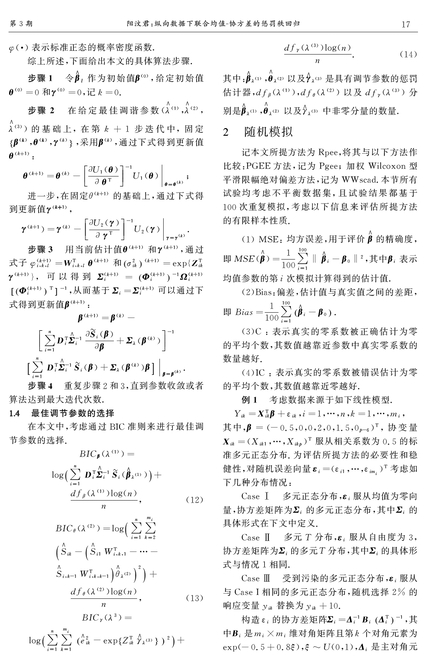 第 3 期
阳汶君：纵向数据下联合均值-协方差的惩罚秩回归
17
φ(·)表示标准正态的概率密度函数.
综上所述,下面给出本文的具体算法步骤.
步骤 1 令β̂_I 作为初始值β^(0),给定初始值
θ^(0)=0 和γ^(0)=0,记 k=0.
步骤 2 在给定最佳调谐参数(λ̂^(1),λ̂^(2),
λ̂^(3))的基础上,在第 k+1 步迭代中,固定
{β^(k),θ^(k),γ^(k)},采用β^(k),通过下式得到更新值
θ^(k+1):
θ^(k+1)=θ^(k)-[∂U_1(θ)/∂θ^T]^{-1}U_1(θ)|_{θ=θ^(k)};
进一步,在固定θ^(k+1)的基础上,通过下式得
到更新值γ^(k+1),
γ^(k+1)=γ^(k)-[∂U_2(γ)/∂γ^T]^{-1}U_2(γ)|_{γ=γ^(k)}.
步骤 3 用当前估计值θ^(k+1)和γ^(k+1),通过
β^(k+1)=β^(k)-
步骤 4 重复步骤 2 和 3,直到参数收敛或者
算法达到最大迭代次数.
1.4 最佳调节参数的选择
在本文中,考虑通过 BIC 准则来进行最佳调
节参数的选择.
BIC_β(λ^(1))=
df_β(λ^(1))log(n)/n, (12)
BIC_θ(λ^(2))=log(
df_θ(λ^(2))log(n)/n, (13)
BIC_γ(λ^3)=
df_γ(λ^(3))log(n)/n. (14)
其中:β̂_λ(1),θ̂_λ(2)以及γ̂_λ(3)是具有调节参数的惩罚
估计器,df_β(λ^(1)),df_θ(λ^(2))以及 df_γ(λ^(3))分
别是β̂_λ(1),θ̂_λ(2)以及γ̂_λ(3)中非零分量的数量.
2 随机模拟
记本文所提方法为 Rpee,将其与以下方法作
比较:PGEE 方法,记为 Pgee;加权 Wilcoxon 型
平滑限幅绝对偏差方法,记为 WWscad.本节所有
试验均考虑不平衡数据集,且试验结果都基于
100 次重复模拟,考虑以下信息来评估所提方法
的有限样本性质.
(1) MSE:均方误差,用于评价β̂的精确度,
即 MSE(β̂)=1/100 ∑_{i=1}^{100}‖β̂_i-β_0‖²,其中β̂_i表示
均值参数的第 i 次模拟计算得到的估计值.
(2)Bias:偏差,估计值与真实值之间的差距,
即 Bias=1/100 ∑_{i=1}^{100}(β̂_i-β_0).
(3)C:表示真实的零系数被正确估计为零
的平均个数,其数值越靠近参数中真实零系数的
数量越好.
(4)IC:表示真实的非零系数被错误估计为零
的平均个数,其数值越靠近零越好.
例 1 考虑模拟数据来源于如下线性模型.
Y_ik=X_ik^Tβ+ε_ik,i=1,⋯,n,k=1,⋯,m_i,
其中,β=(-0.5,0,0,2,0,1.5,0_{p-6})^T,协变量
X_ik=(X_ik1,⋯,X_ikp)^T服从相关系数为 0.5 的标
准多元正态分布.为评估所提方法的必要性和稳
健性,对随机误差向量ε_i=(ε_i1,⋯,ε_im_i)^T考虑如
下几种分布情况:
Case Ⅰ 多元正态分布,ε_i服从均值为零向
量,协方差矩阵为Σ_i的多元正态分布,其中Σ_i的
具体形式在下文中定义.
Case Ⅱ 多元 T 分布,ε_i服从自由度为 3,
协方差矩阵为Σ_i的多元T分布,其中Σ_i的具体形
式与情况 1 相同.
Case Ⅲ 受到污染的多元正态分布,ε_i服从
与 Case Ⅰ相同的多元正态分布,随机选择 2% 的
响应变量 y_ik替换为 y_ik+10.
构造ε_i的协方差矩阵Σ_i=Δ_i^{-1}B_i(Δ_i^T)^{-1},其
中B_i是 m_i×m_i维对角矩阵且第 k 个对角元素为
exp(-0.5+0.8ξ),ξ~U(0,1),Δ_i是主对角元